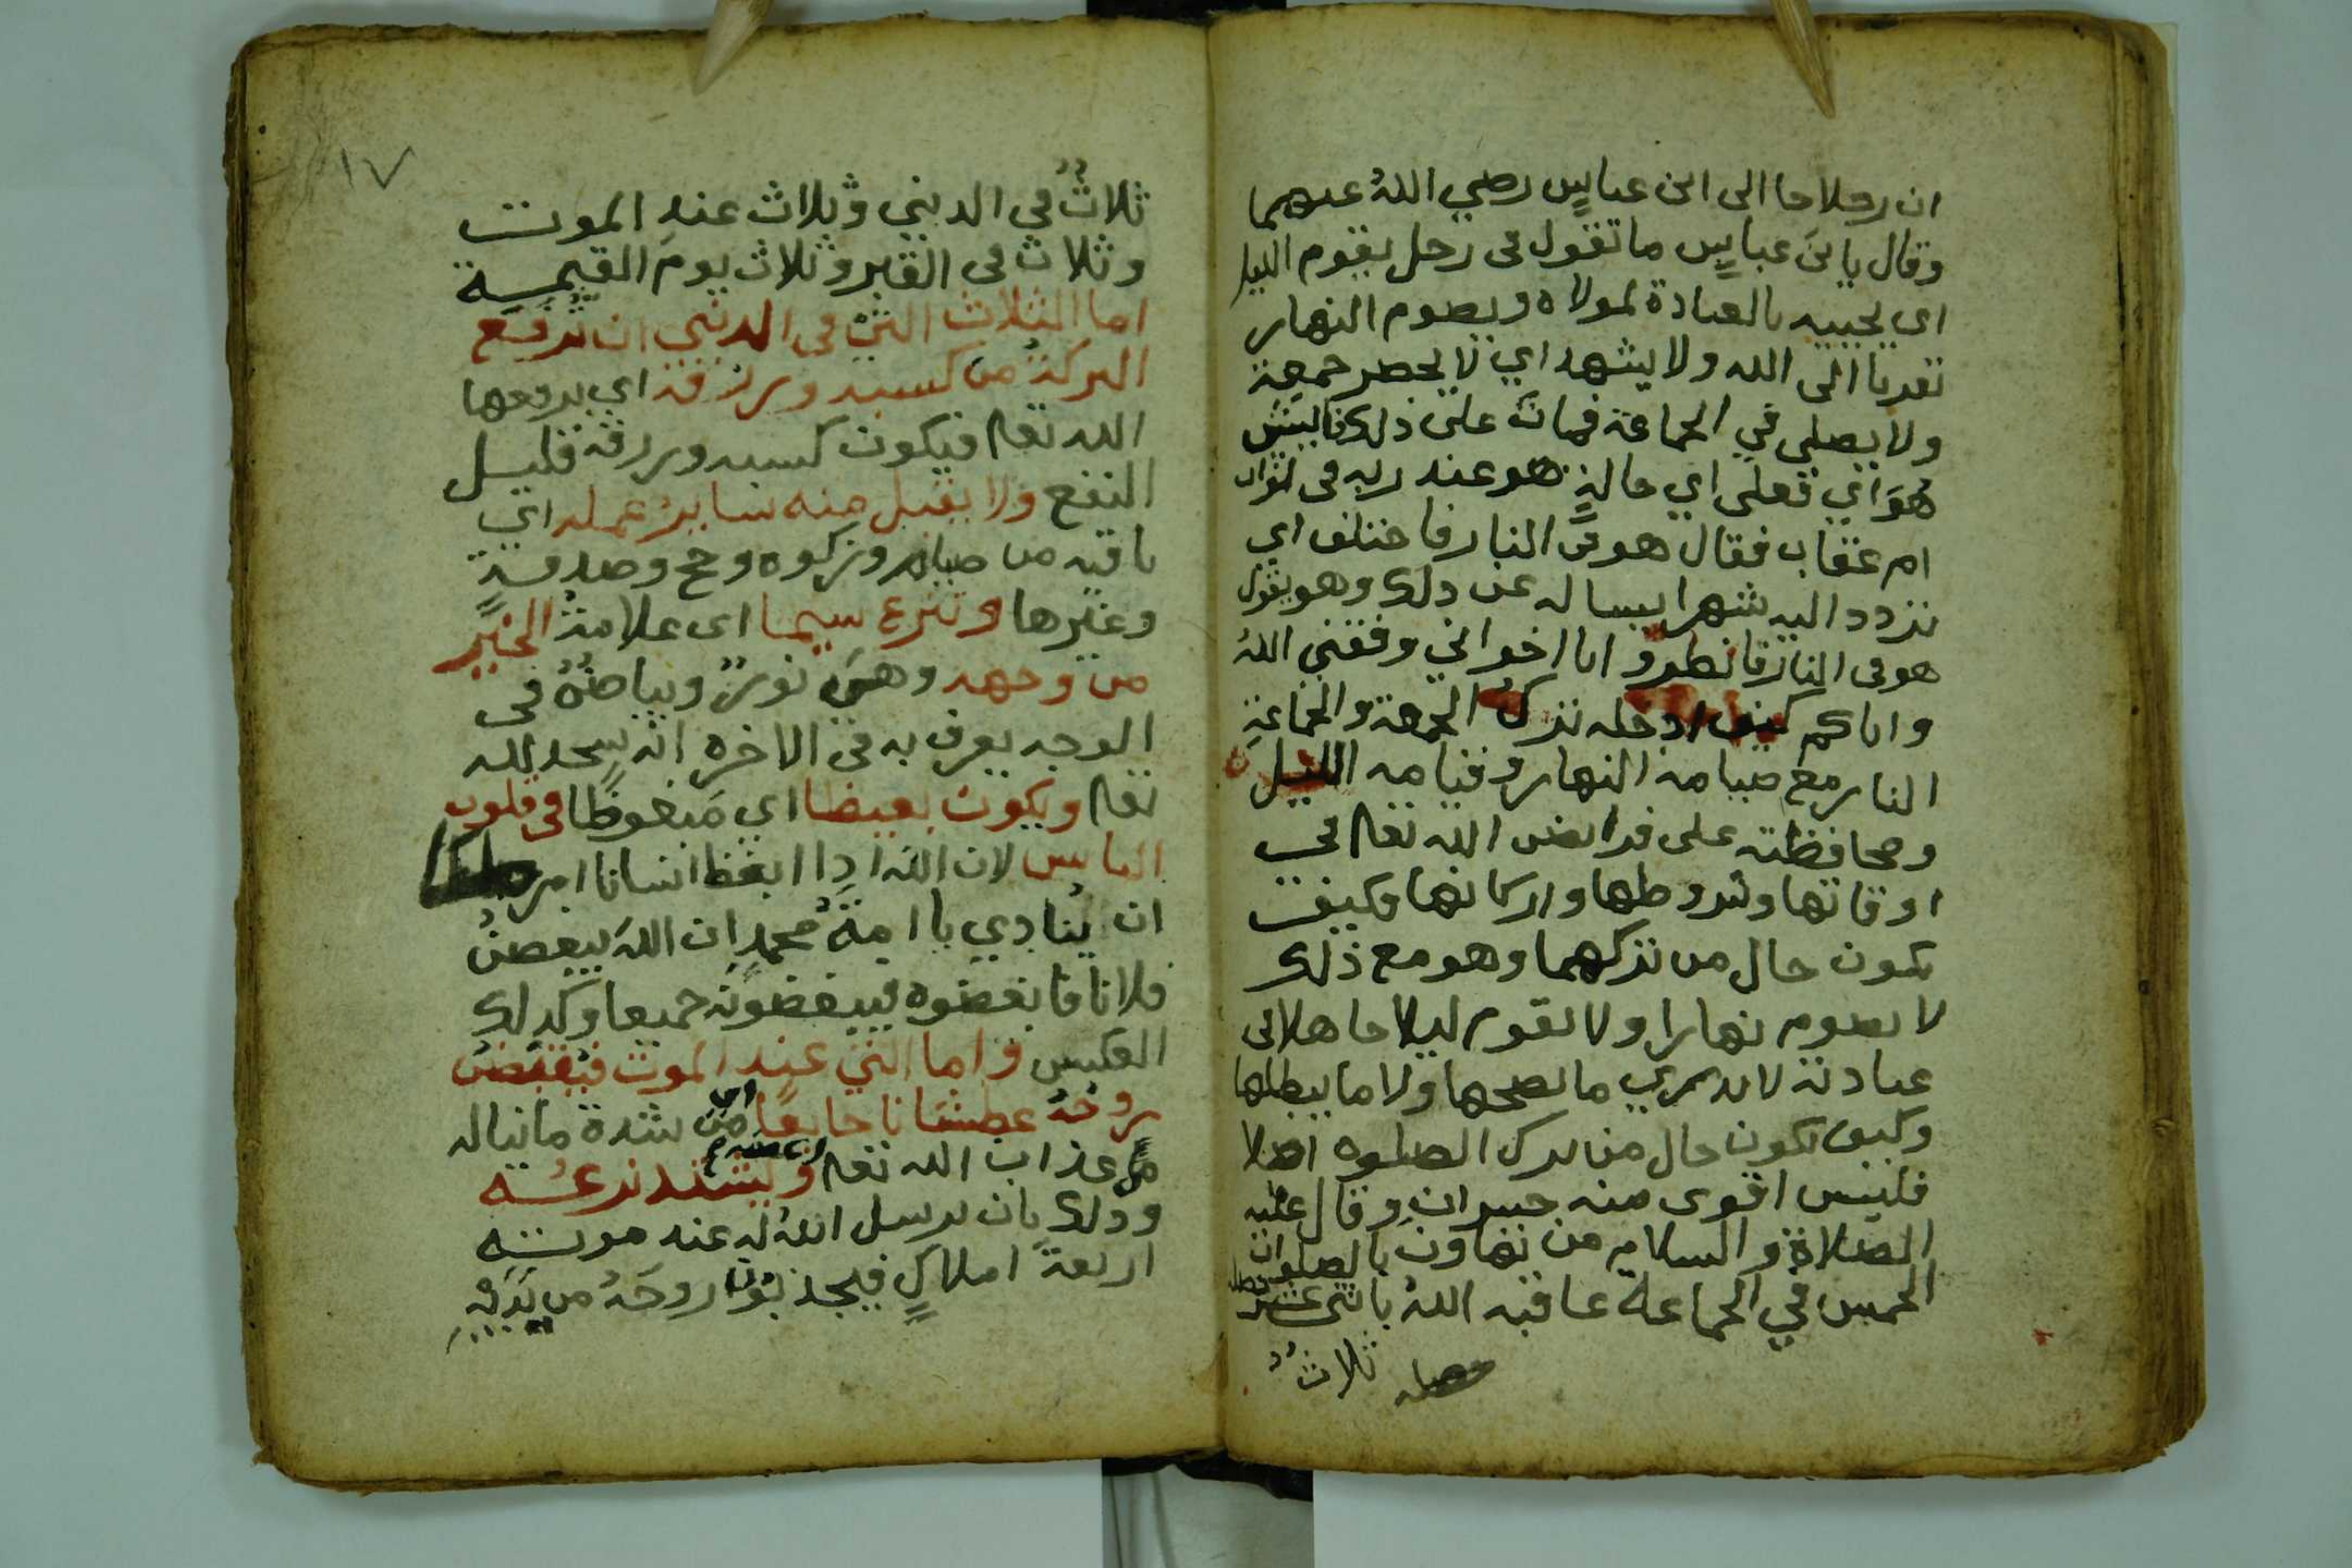 ان رجلا جا الى ابن عباس رضي الله عنهما
وقال يابن عباس ما تقول فى رجل يقوم الليل
اي يحييه بالعبادة لمولاه ويصوم النهار
تقربا الى الله ولا يشهد اي لا يحضر جمعة
ولا يصلي في الجماعة فمات على ذلك فاليش
هو اي فعلى اي حالة هو عند ربه فى ثواب
ام عقاب فقال هو في النار فاختلف اي
تردد اليه شهرا يساله عن ذلك وهو يقول
هو فى النار فانظروا يا اخواني وفقني الله
واياكم كيف ادخله ترك الجمعة والجماعة
النار مع صيامه النهار وقيامه الليل
ومحافظته على فرايض الله تعا في
اوقاتها وشروطها واركانها وكيف
يكون حال من تركهما وهو مع ذلك
لا يصوم نهارا ولا يقوم ليلا جاهلا فى
عبادته لا يدري ما يصححها ولا ما يبطلها
وكيف يكون حال من يترك الصلوه اصلا
فليس اقوى منه خسران وقال عليه
الصلاة والسلام من تهاون بالصلوات
الخمس في الجماعة عاقبه الله باثنى عشر خصله
خصله ثلاث
١٧
ثلاث في الدنيي وثلاث عند الموت
وثلاث فى القبر وثلاث يوم القيمة
اما الثلاث التي فى الدنيي ان ترفع
البركة من كسبه ورزقه اي يرفعها
الله تعا فيكون كسبه ورزقه قليل
النفع ولا يقبل منه ساير عمله اي
باقيه من صيام وزكوه وحج وصدقة
وغيرها وتنزع سيما اى علامة الخير
من وجهه وهي نور وبياض فى
الوجه يعرف به فى الاخره انه سجد لله
تعا ويكون بغيضا اي مبغوظا فى قلوب
الناس لان الله اذا ابغظ انسانا امر ملكا
ان ينادي يا امة محمد ان الله يبغض
فلانا فابغضوه فيبغضونه جميعا وكذلك
العكس واما التي عند الموت فيقبض
روحه عطشانا جايعا اى من شدة ما يناله
من عذاب الله تعا ويشتد نزعه
وذلك بان يرسل الله له عند موته
اربعة املاك فيجذبون روحه من يديه